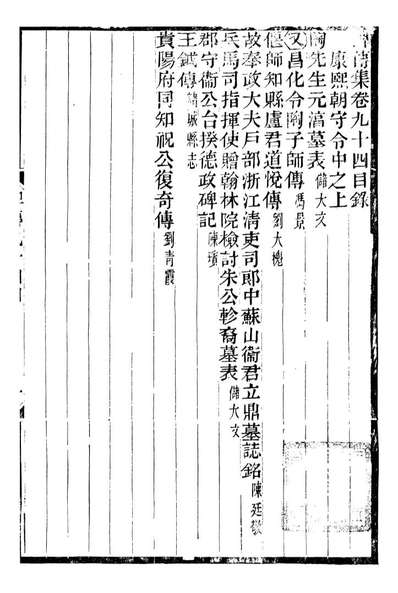 碑傳集卷九十四目錄
康熙朝守令中之上
陶先生元淳墓表 儲大文
又昌化令陶子師傳 馮景
偃師知縣盧君道悅傳 劉大櫆
故奉政大夫戶部浙江淸吏司郎中蘇山衞君立鼎墓誌銘 陳廷敬
兵馬司指揮使贈翰林院檢討朱公軫裔墓表 儲大文
郡守衞公台揆德政碑記 陳璸
王鉽傳 諸城縣志
貴陽府同知祝公復奇傳 劉青霞